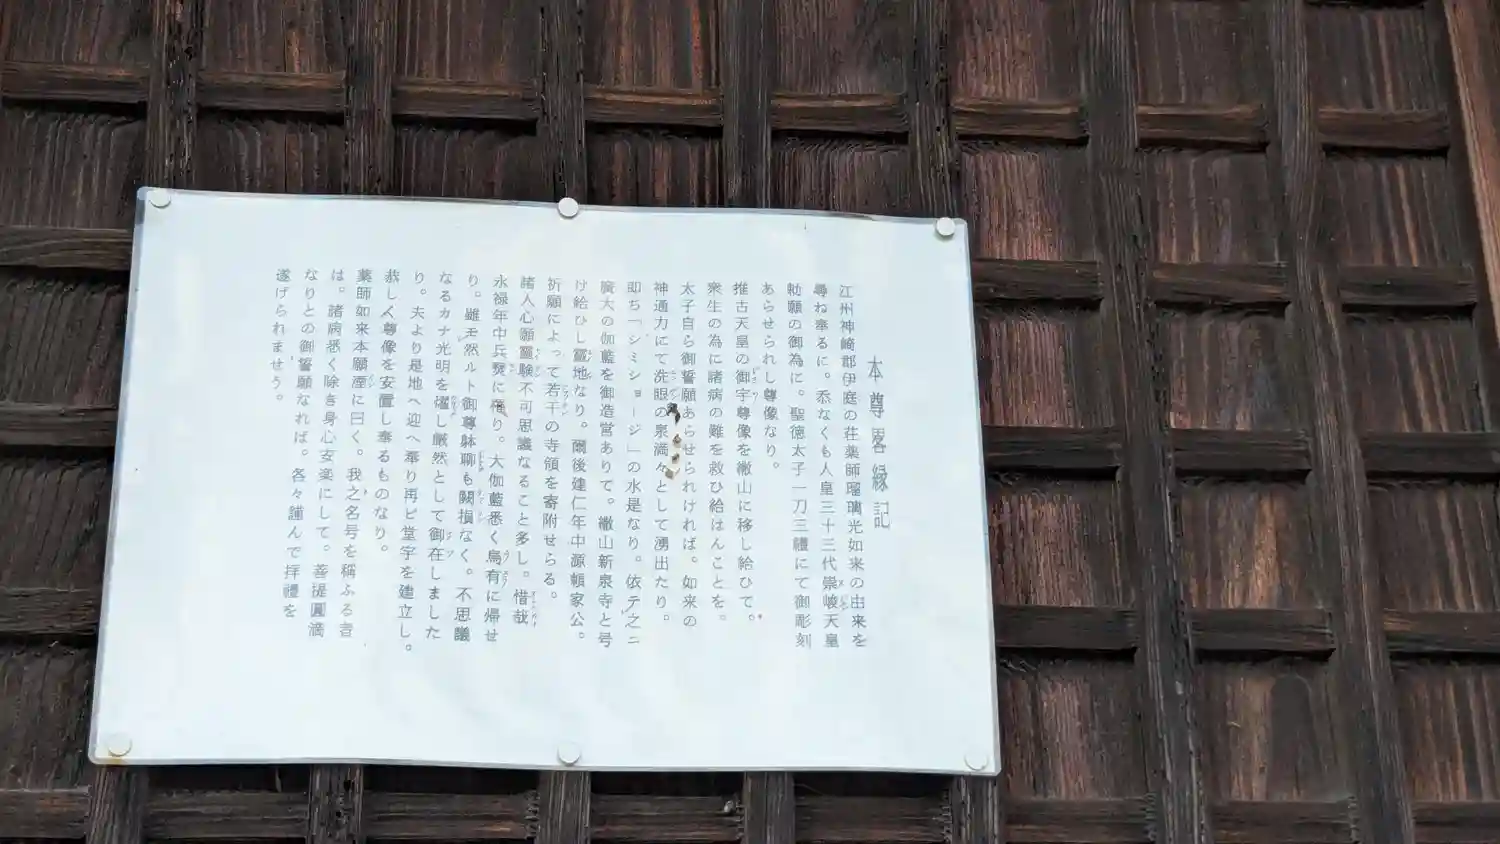 本尊畧縁記
江州神崎郡伊庭の荘薬師瑠璃光如来の由来を
尋ね奉るに。忝なくも人皇三十三代崇峻天皇
勅願の御為に。聖徳太子一刀三禮にて御彫刻
あらせられし尊像なり。
推古天皇の御宇尊像を繖山に移し給ひて。
衆生の為に諸病の難を救ひ給はんことを。
太子自ら御誓願あらせられければ。如来の
神通力にて洗眼の泉満々として湧出たり。
即ち「シミショージ」の水是なり。依テ之ニ
廣大の伽藍を御造営ありて。繖山新泉寺と号
け給ひし靈地なり。爾後建仁年中源頼家公。
祈願によって若干の寺領を寄附せらる。
諸人心願靈験不可思議なること多し。惜哉
永禄年中兵燹に罹り。大伽藍悉く烏有に帰せ
り。雖モ然ルト御尊躰聊も闕損なく。不思議
なるカナ光明を燿し厳然として御在しました
り。夫より是地へ迎へ奉り再ビ堂宇を建立し。
恭しく尊像を安置し奉るものなり。
薬師如来本願経に曰く。我之名号を稱ふる者
は。諸病悉く除き身心安楽にして。菩提圓満
なりとの御誓願なれば。各々謹んで拝禮を
遂げられませう。